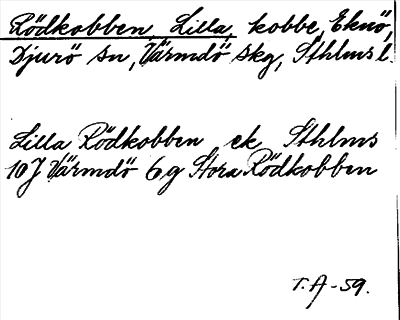 Rödkobben, Lilla, kobbe, Eknö,
Djurö sn, Värmdö skg, Sthlms l.
Lilla Rödkobben ek Sthlms
10J Värmdö 6g Stora Rödkobben
T.A-59.